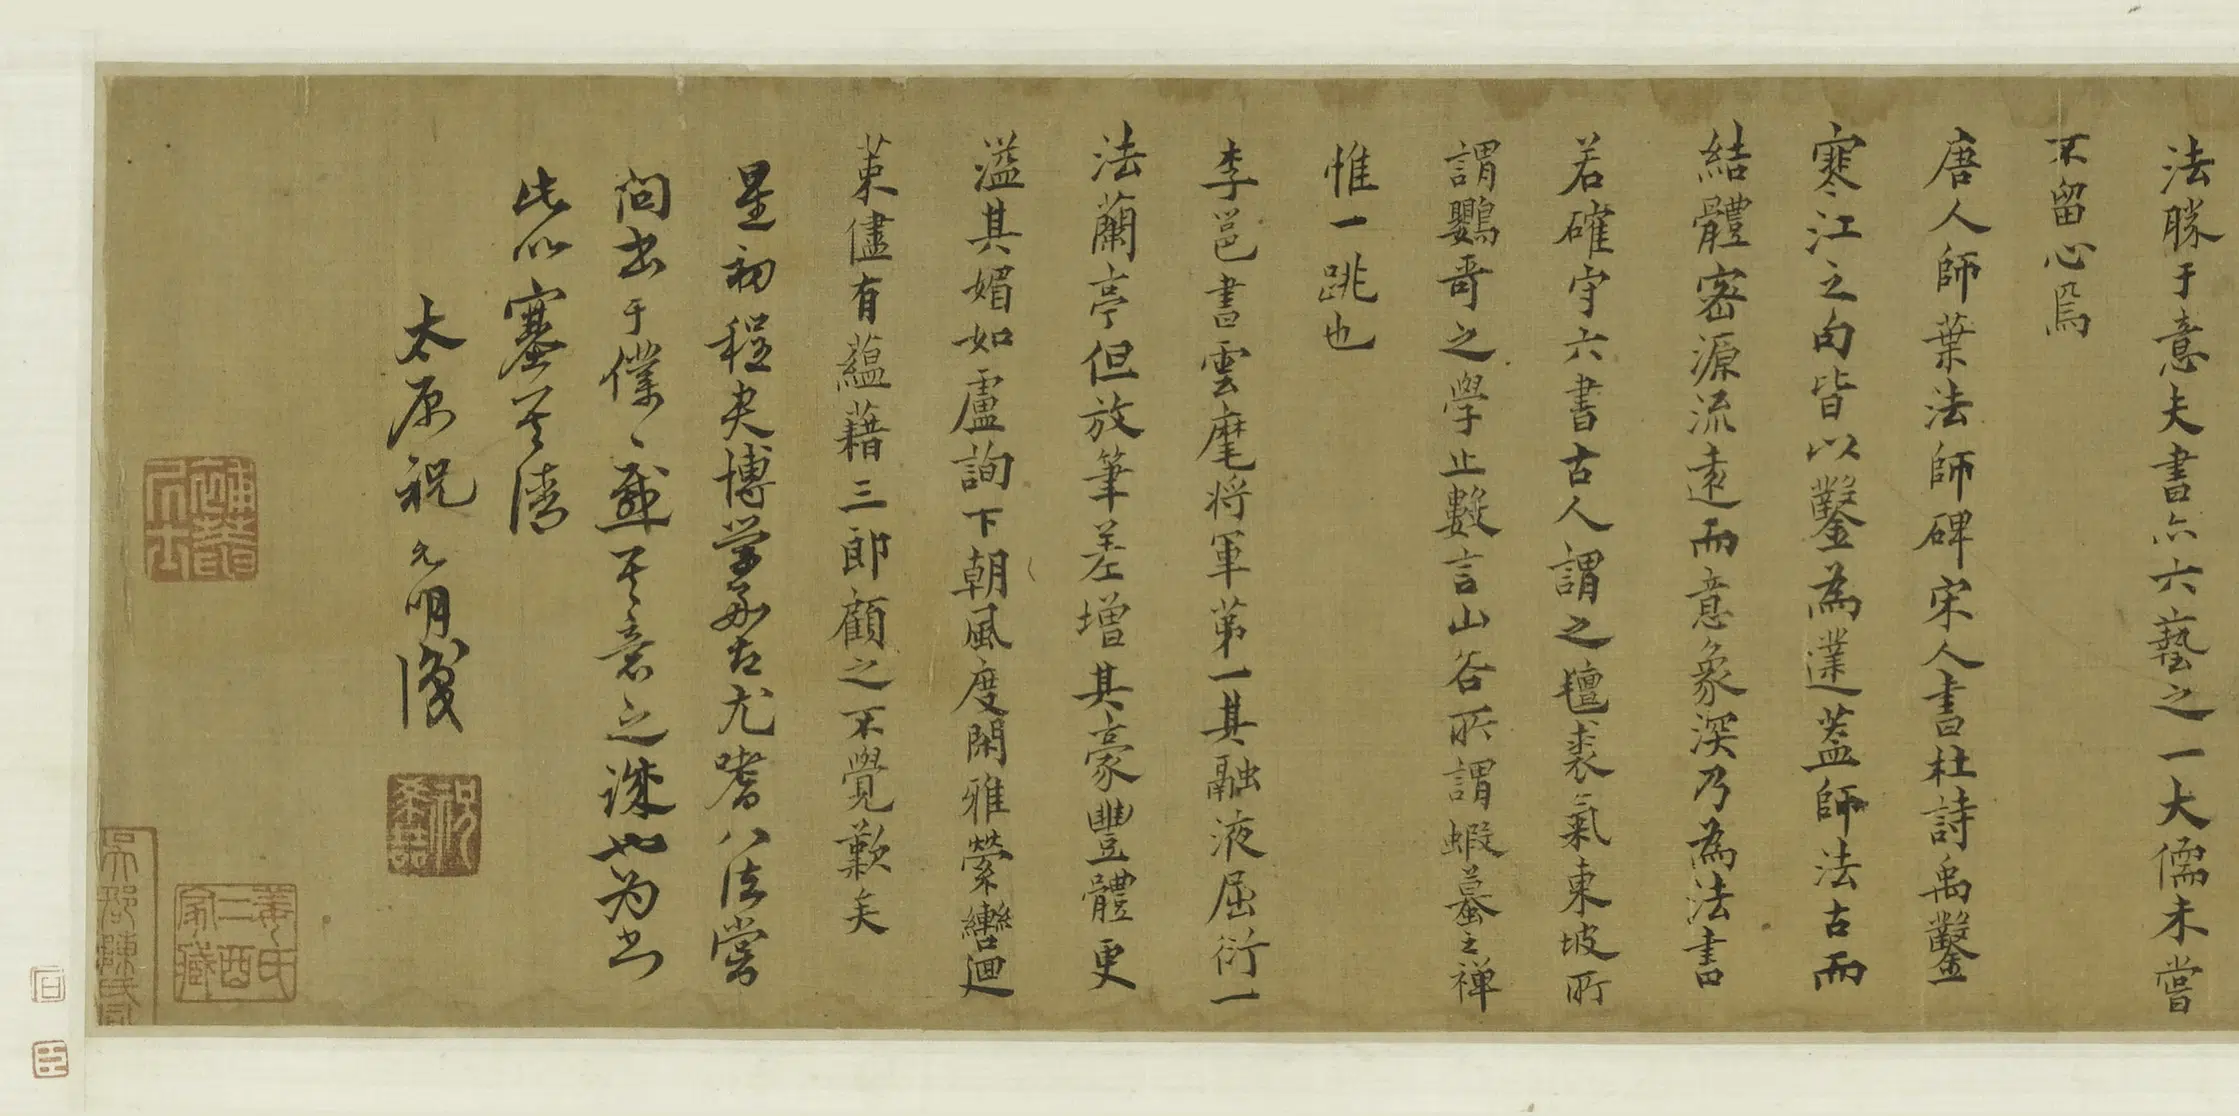 法勝于意夫書亦六藝之一大儒未嘗
不留心焉
唐人師葉法師碑宋人書杜詩禹鑿
寒江之句皆以鑿為蘴蓋師法古而
結體密源流遠而意象深乃為法書
若確守六書古人謂之氊裘氣東坡所
謂鸚哥之學止數言山谷所謂蝦蟇之禅
惟一跳也
李邕書雲麾将軍苐一其融液屈衍一
法蘭亭但放筆差增其豪豐體更
溢其媚如盧詢下朝風度閑雅縈轡迴
䇿儘有蘊藉三郎顧之不覺歎矣
星初程夫博学好古尤嗜八法嘗
问出于僕〻感其意之誠也为书
此以塞其請
太原祝允明識
祝
姜氏二酉家藏
吳郡陳氏